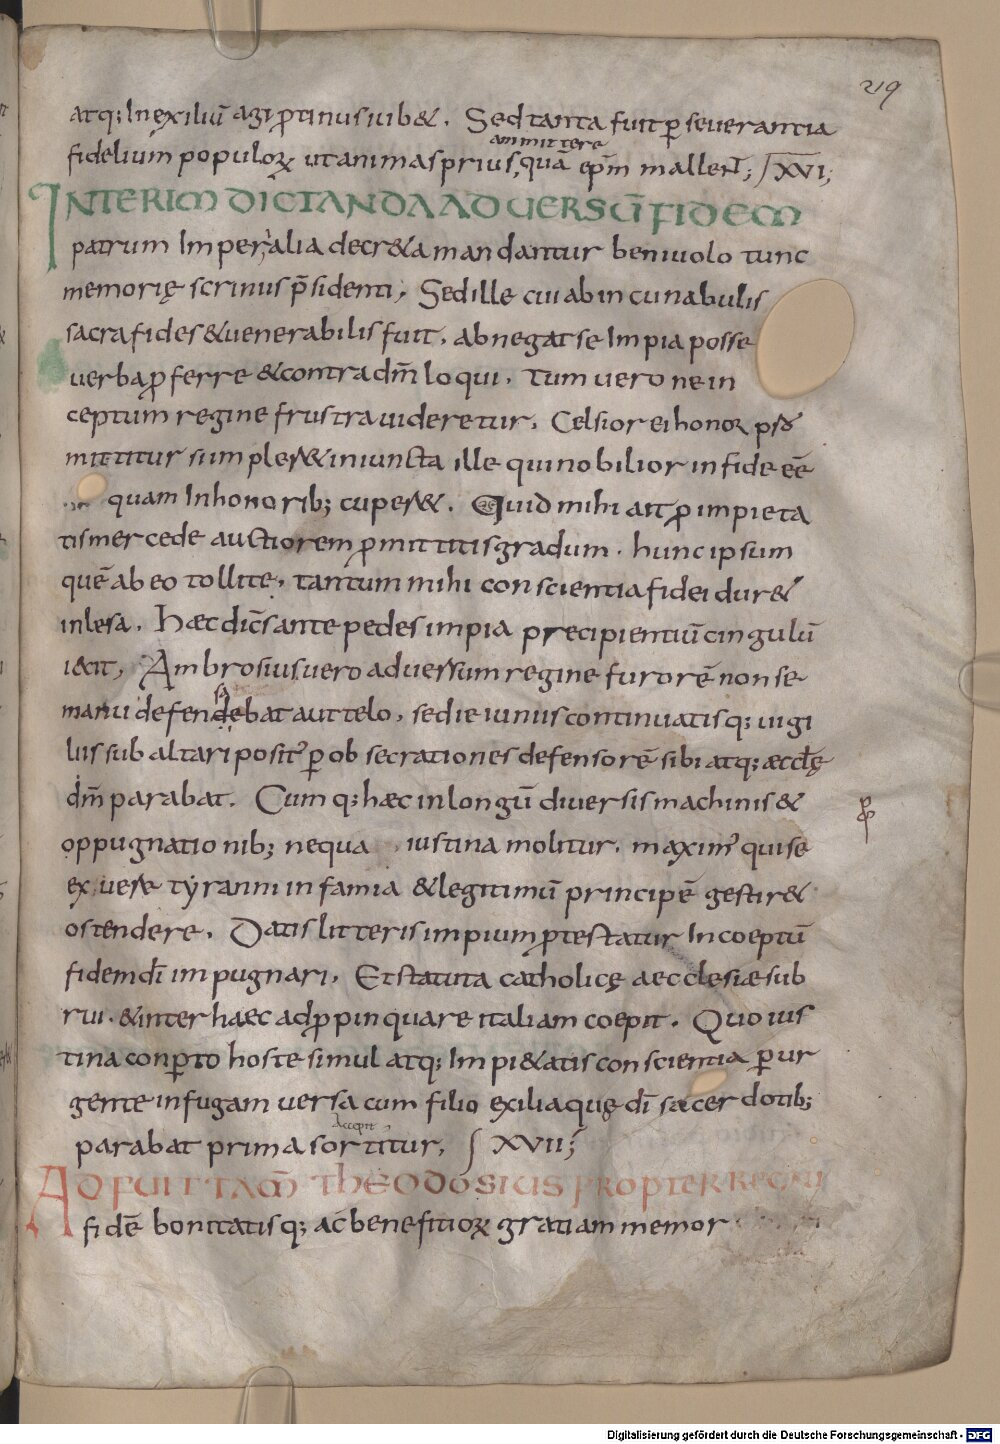 219
atq; In exiliū agi ꝓtinus iub&. Sed tanta fuit ꝑseuerantia
ammittere
fidelium populoꝝ ut animas prius, quā ep̄m mallent̄; XVI;
INTERIM DICTANDA ADUERSŪ FIDEM
patrum Imperialia decr&a mandantur beniuolo tunc
memorię scriniis p̄sidenti, Sed ille cui ab incunabulis
sacra fides & uenerabilis fuit, abnegat se Impia posse
uerba ꝓferre & contra dm̄ loqui, Tum uero ne in
ceptum regine frustra uideretur, Celsior ei honoꝝ
mittitur si impless& iniuncta ille qui nobilior in fide eē
quam In honorib; cupess&. Quid mihi ait ꝓ impieta
tis mercede auctiorem ꝓmittitis gradum. hunc ipsum
quē abeo tollite, tantum mihi conscientia fidei dur&
inlesa. Haec dic̄s ante pedes impia precipientiū cingulū
iecit, Ambrosius uero aduersum regine furorē non se
sa
manu defendebat aut telo, sed ieiuniis continuatisq; uigi
liis sub altari posit' ꝑ obsecrationes defensorē sibi atq; æccl̄ę
dm̄ parabat. Cumq; hæc in longū diuersis machinis &
ꝓ
oppugnationib; nequa iustina molitur. maxim' qui se
exuere tyranni infamia & legitimū principē gestir&
ostendere. Datis litteris impium ꝓtestatur Incoeptū
fidem dī impugnari, Et statuta catholicę aecclesiæ sub
rui. & inter haec adꝓpinquare italiam coepit. Quo ius
tina conꝑto hoste simul atq; Impi&atis conscientia ꝑur
gente in fugam uersa cum filio exilia quę dī sacerdotib;
Accepit
parabat prima sortitur, XVII;
ADFUIT TAM̄ THEODOSIUS PROPTER REGNI
fidē bonitatisq; ac benefitioꝝ gratiam memor
Digitalisierung gefördert durch die Deutsche Forschungsgemeinschaft - DFG